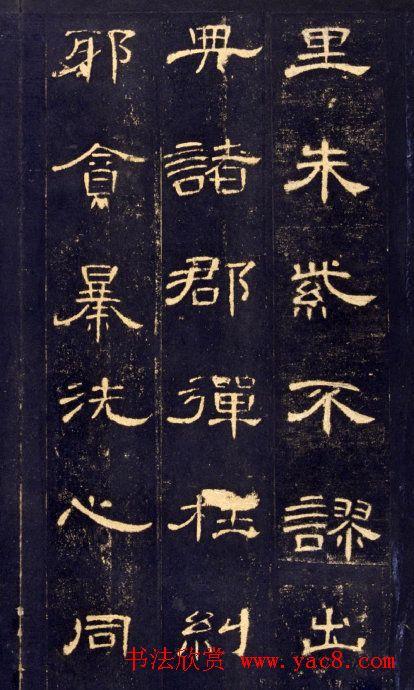 里朱紫不謬出
典諸郡彈枉糾
邪貪暴洗心同
书法欣赏 www.yac8.com